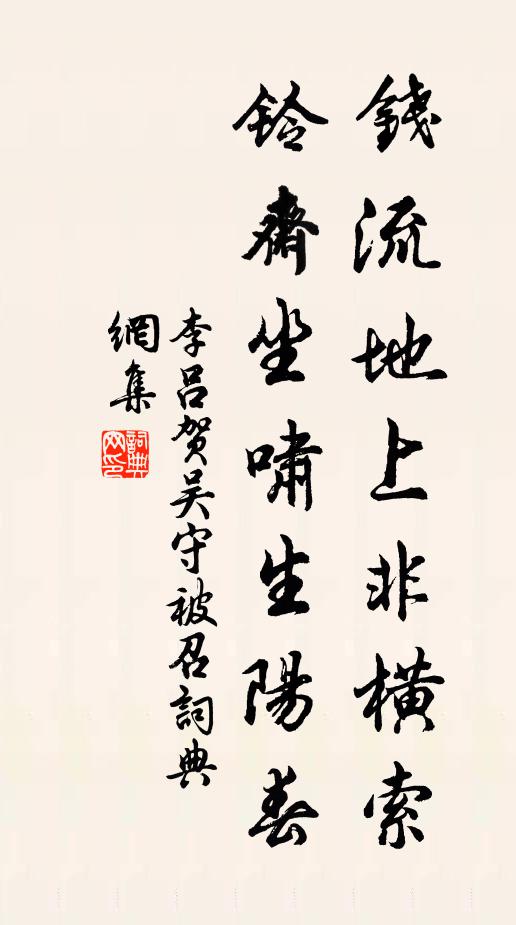 錢流地上非橫索
鈴齋坐嘯生陽春
李吕贺吴守被召詞典
網集
詞典
网印